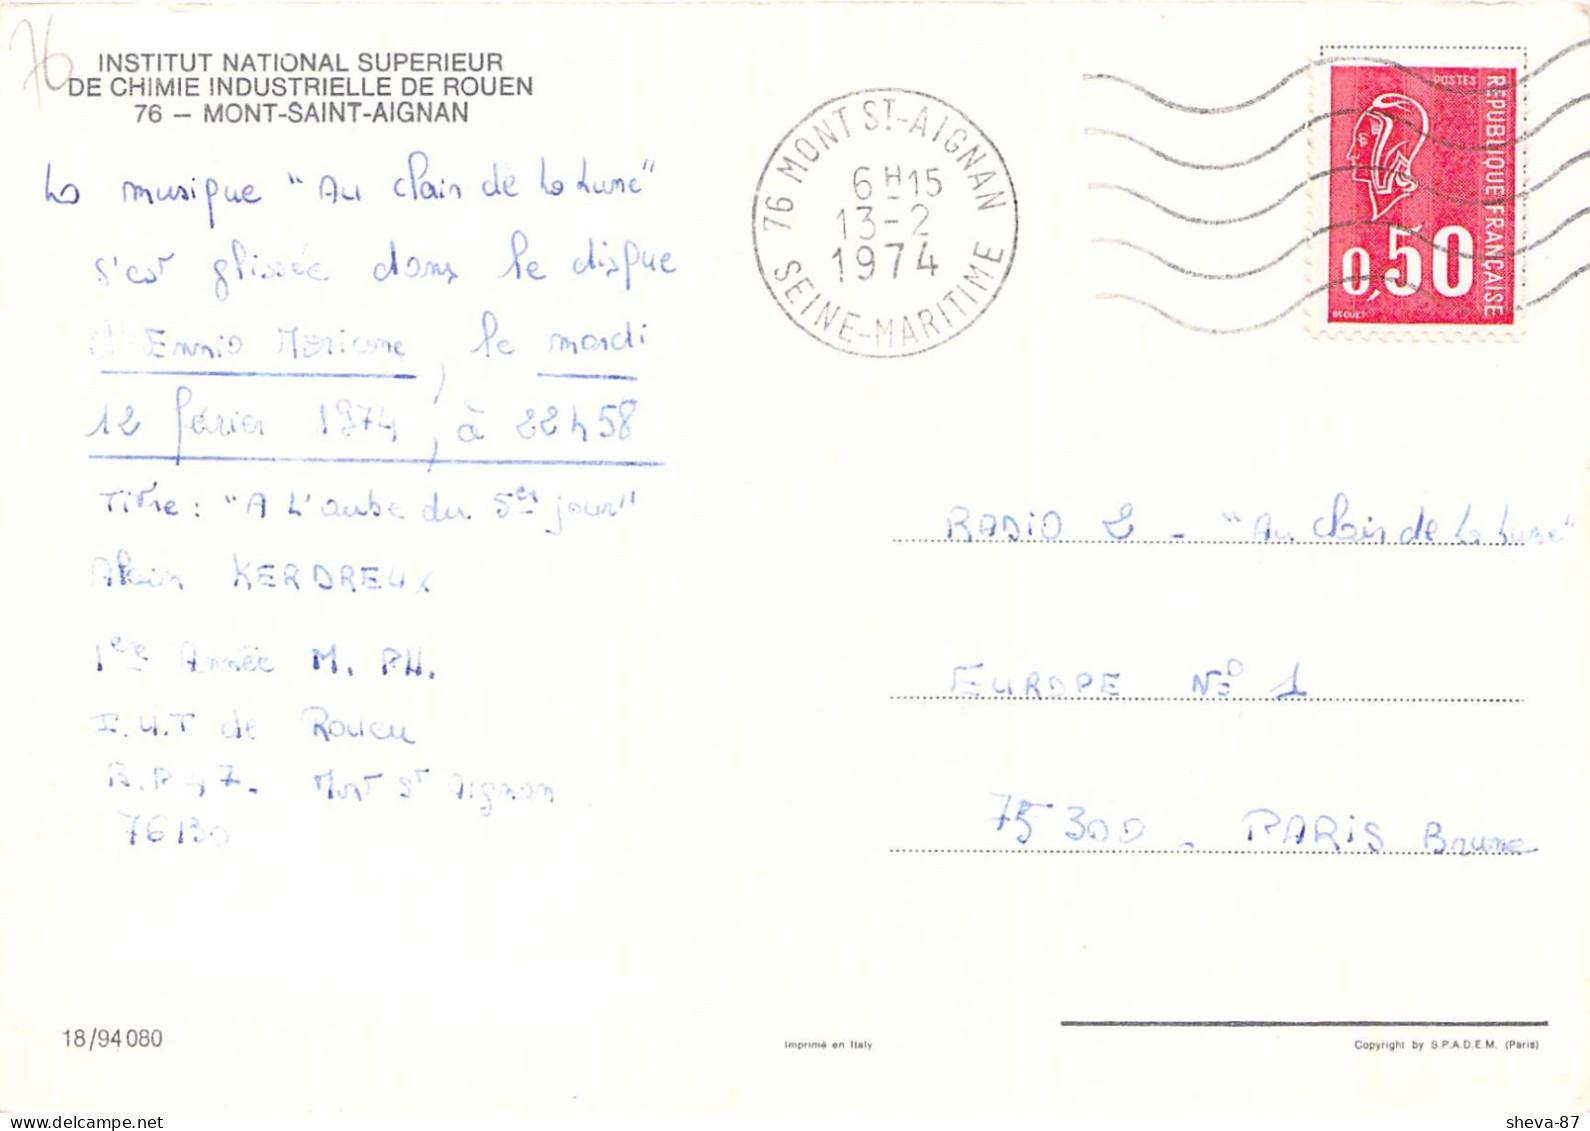 76
INSTITUT NATIONAL SUPERIEUR
DE CHIMIE INDUSTRIELLE DE ROUEN
76 — MONT-SAINT-AIGNAN
La musique "Au clair de la Lune"
s'est glissée dans le disque
d'Ennio Moricone, le mardi
12 février 1974, à 22h58
Titre : "A L'aube du 5er jour"
Alain KERDREUX
1ere Année M. PH.
I.U.T de Rouen
B.P 47. Mont St Aignan
76130
18/94080
76 MONT ST-AIGNAN
6H15
13-2
1974
SEINE-MARITIME
POSTES
REPUBLIQUE FRANÇAISE
0,50
BEQUET
RADIO 2 - "Au clair de la Lune"
EUROPE No 1
75300 - PARIS Brune
Imprimé en Italy
Copyright by S.P.A.D.E.M. (Paris)
sheva-87